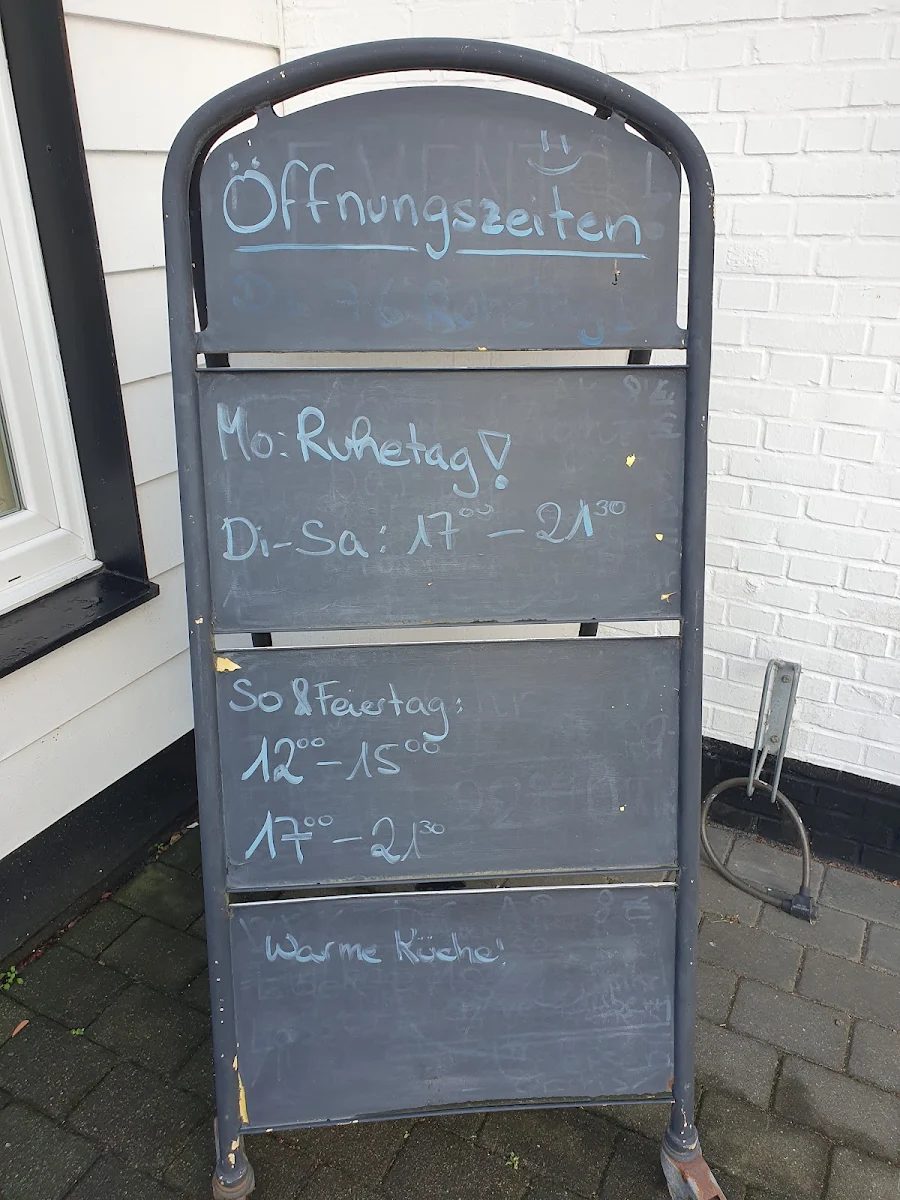 Öffnungszeiten
Mo: Ruhetag!
Di-Sa: 17⁰⁰ - 21³⁰
So & Feiertag:
12⁰⁰ - 15⁰⁰
17⁰⁰ - 21³⁰
Warme Küche!